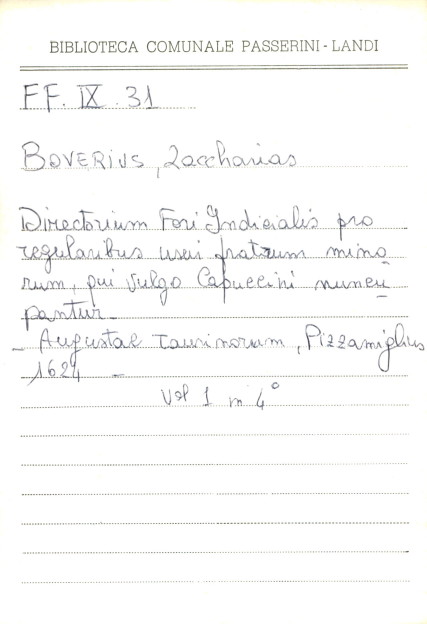 BIBLIOTECA COMUNALE PASSERINI - LANDI
FF. IX. 31
BOVERIUS, Zaccharias
Directorium Fori Iudicialis pro
regularibus usui fratrum mino
rum, qui vulgo Capuccini nuncu
pantur -
- Augustae Taurinorum, Pizzamiglius
1624 -
Vol 1 in 4°